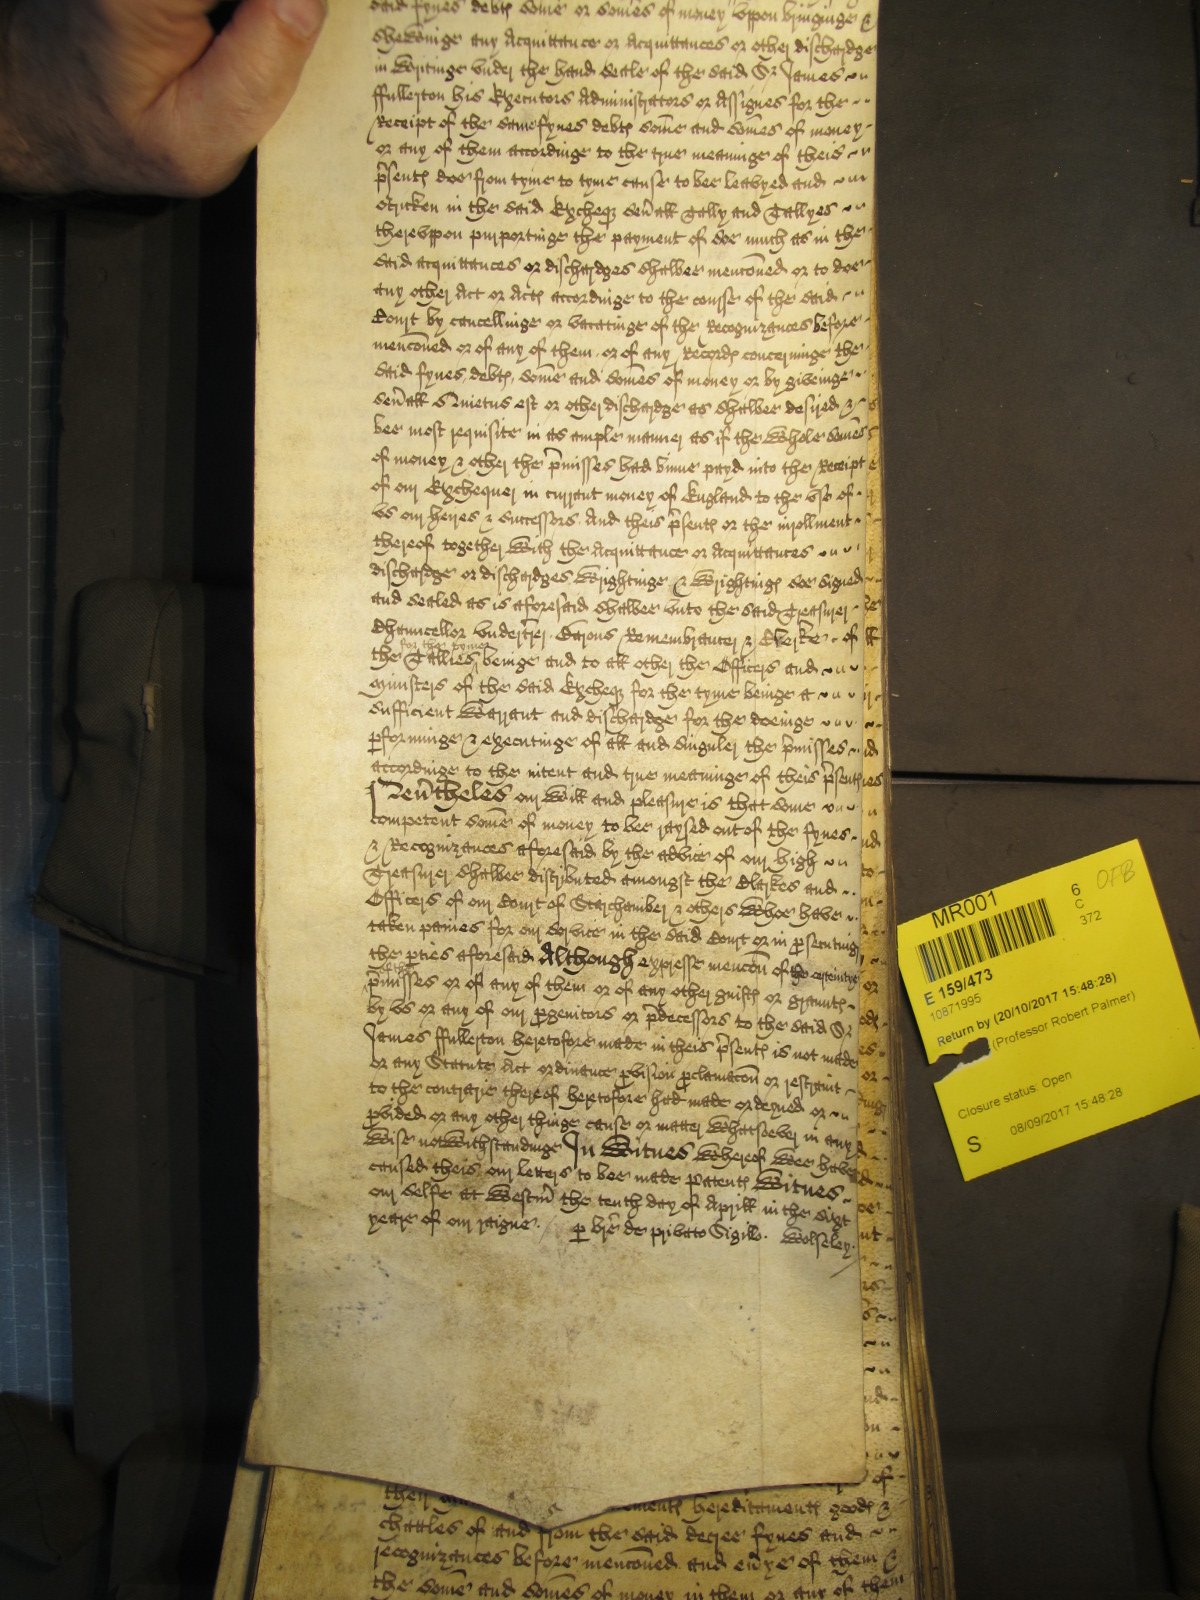 said fynes debts some or somes of money uppon bringinge &
shewinge any Acquittance or Acquittances or other dischardge
in writinge under the hand seale of the said Sr James
ffullerton his Executors Administrators or Assignes for the
Receipt of the same fynes debts some and somes of money
or any of them accordinge to the true meaninge of theis
p̄sents doe from tyme to tyme cause to bee leavyed and
stricken in the said Excheqr sev̄all Tally and Tallyes
thereuppon purportinge the payment of soe much as in the
said acquittances or dischardges shalbee menc̄oned or to doe
any other Act or Acts accordinge to the course of the said
Court by cancellinge or vacatinge of the Recognizances before
menc̄oned or of any of them or of any Records concerninge the
said fynes debts, some and somes of money or by giveinge
sev̄all Quietus est or other dischardge as shalbee desired &
bee most requisite in as ample manner as if the whole somes
of money & other the p̄misses had binne payd into the Receipt
of our Exchequer in currant money of England to the use of
us our heires & successors. And theis p̄sents or the inrollment
thereof together with the Acquittance or Acquittances
dischardge or dischardges wrightinge & wrightings soe signed
and sealed as is aforesaid shalbee unto the said Treasurer
Chancellor undertrēr Barons Remembrancer & Clerke of
for the tyme
the Tallies beinge and to all other the Officers and
Ministers of the said Excheqr for the tyme beinge a
sufficient Warrant and dischardge for the doeinge
p̱forminge & executinge of all and singuler the p̄misses
accordinge to the intent and true meaninge of theis p̄sents
Nev̄theles our will and pleasure is that some
competent some of money to bee raysed out of the fynes
& Recognizances aforesaid by the advice of our high
Treasurer shalbee distributed amongst the Clarkes and
Officers of our Court of Starchamber & others whoe have
taken paines for our service in the said Court or in p̱secutinge
the p̱ties aforesaid Although expresse menc̄on of the certeintye
of the
p̄misses or of any of them or of any other guifts or graunts
by us or any of our p̱genitors or p̄decessors to the said Sr
James ffullerton heretofore made in theis p̄sents is not made
or any Statute Act ordinance p̱vision p̱clamac̄on or restraint
to the contrarie thereof heretofore had made ordeyned or
p̱vided or any other thinge cause or matter whatsoever in any
wise notwithstandinge In Witnes whereof wee have
caused theis our letters to bee made Patents Witnes
our selfe at Westm̄ the tenth day of Aprill in the sixt
yeare of our raigne. p̱ brē de privato Sigillo. Wolseley.
chattles of and from the said decree fynes and
recognizances before menc̄oned and ev̄ye of them &
the some and somes of money in them or any of them
hereditaments goods &
MR001
6
C
372
E 159/473
10871995
Return by (20/10/2017 15:48:28)
(Professor Robert Palmer)
Closure status: Open
S
08/09/2017 15:48:28